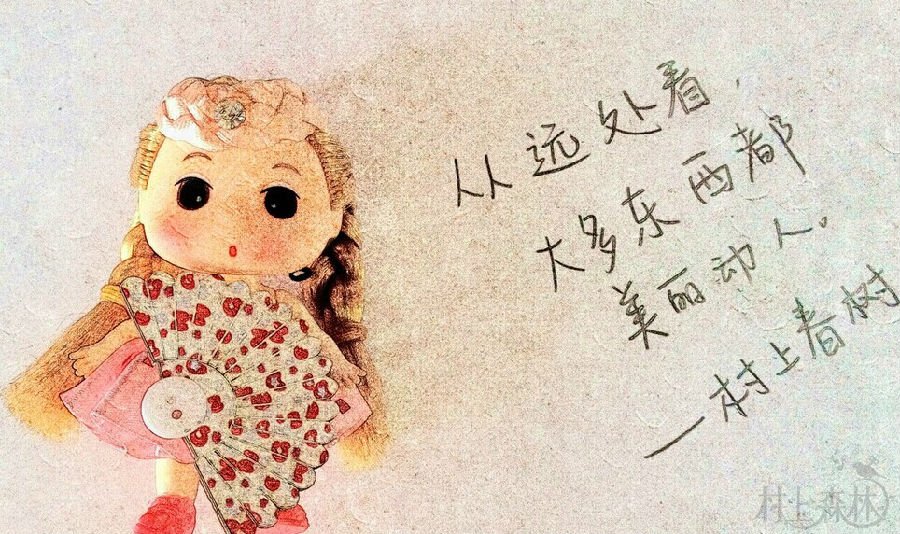 从远处看，
大多东西都
美丽动人。
—村上春树
村上森林